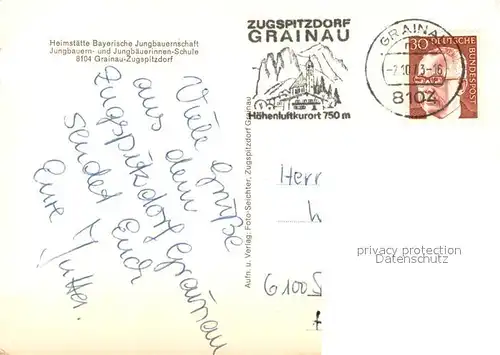 Heimstätte Bayerische Jungbauernschaft
Jungbauern- und Jungbäuerinnen-Schule
8104 Grainau-Zugspitzdorf
ZUGSPITZDORF
GRAINAU
Höhenluftkurort 750 m
GRAINAU
-7.10.73-16
8104
30 DEUTSCHE
BUNDESPOST
Viele Grüße
aus dem
Zugspitzdorf Grainau
sendet Euch
Eure Mutter.
Aufn. u. Verlag: Foto-Seichter, Zugspitzdorf Grainau
Herr
6100
privacy protection
Datenschutz